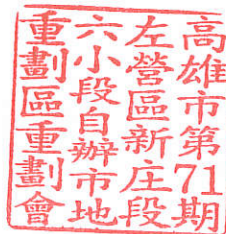 高雄市第71期
左營區新庄段
六小段自辦市地
重劃區重劃會